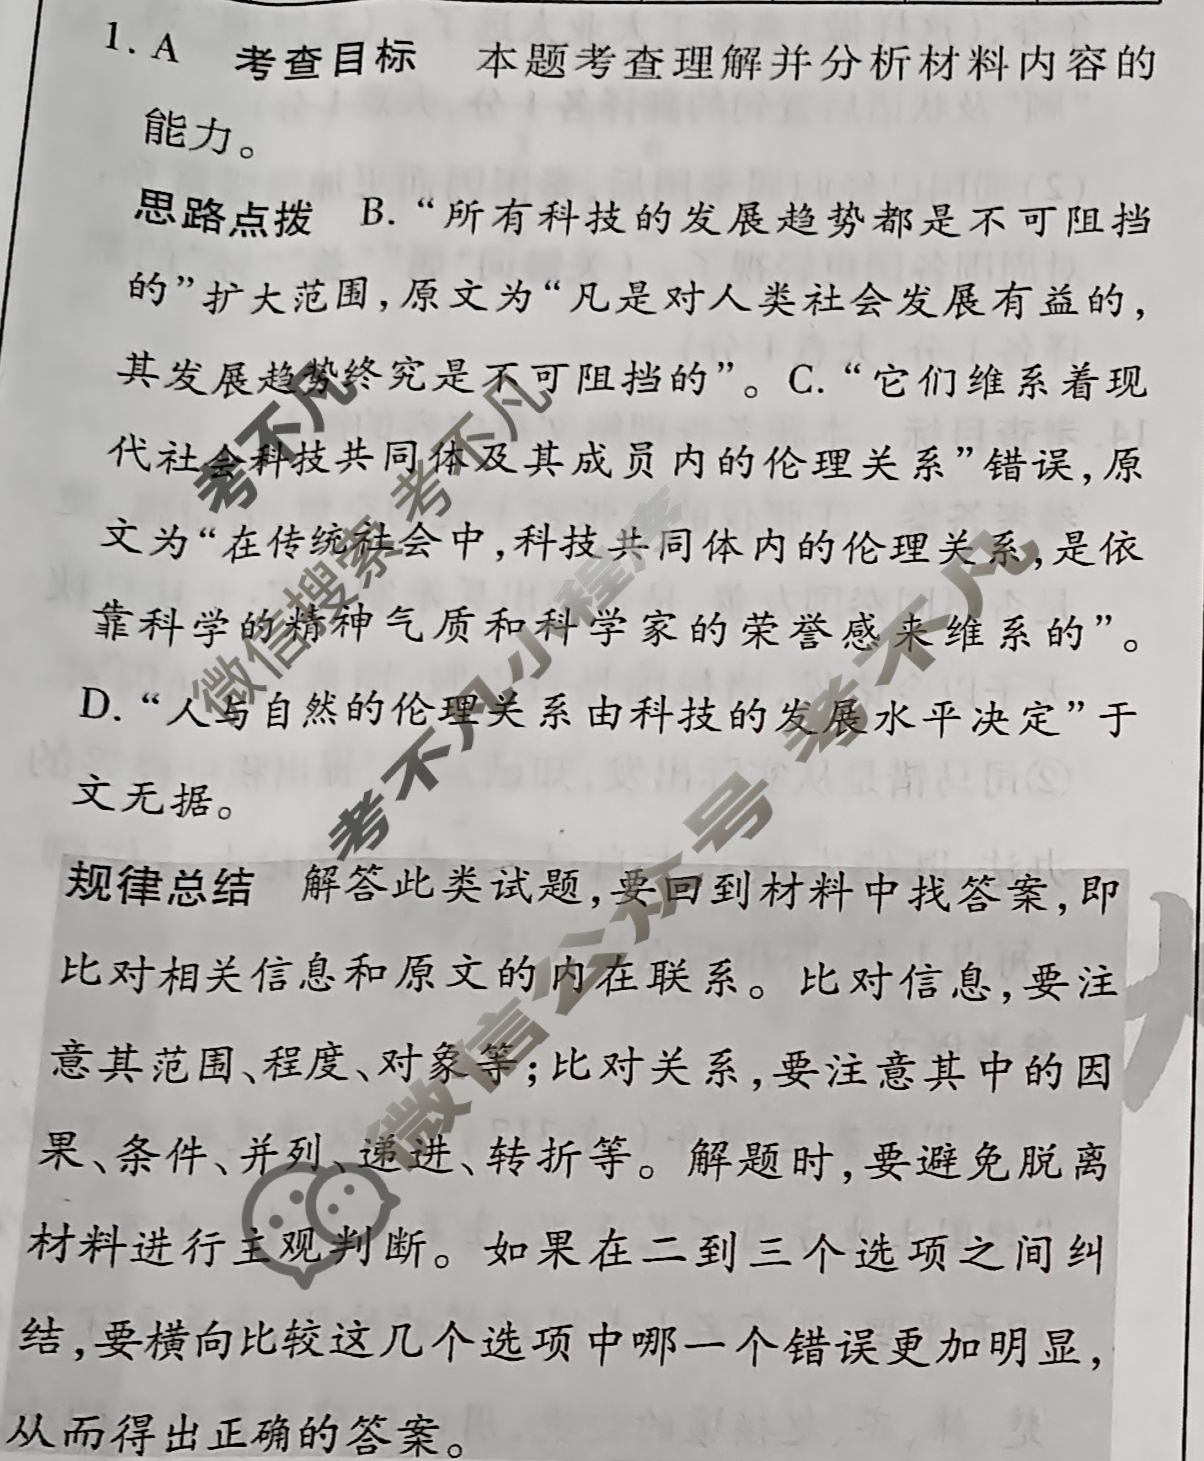 1. A 考查目标 本题考查理解并分析材料内容的
能力。
思路点拨 B. “所有科技的发展趋势都是不可阻挡
的”扩大范围,原文为“凡是对人类社会发展有益的,
其发展趋势终究是不可阻挡的”。C. “它们维系着现
代社会科技共同体及其成员内的伦理关系”错误,原
文为“在传统社会中,科技共同体内的伦理关系,是依
靠科学的精神气质和科学家的荣誉感来维系的”。
D. “人与自然的伦理关系由科技的发展水平决定”于
文无据。
规律总结 解答此类试题,要回到材料中找答案,即
比对相关信息和原文的内在联系。比对信息,要注
意其范围、程度、对象等;比对关系,要注意其中的因
果、条件、并列、递进、转折等。解题时,要避免脱离
材料进行主观判断。如果在二到三个选项之间纠
结,要横向比较这几个选项中哪一个错误更加明显,
从而得出正确的答案。
考不凡
微信搜索 考不凡
考不凡小程序
微信公众号 考不凡